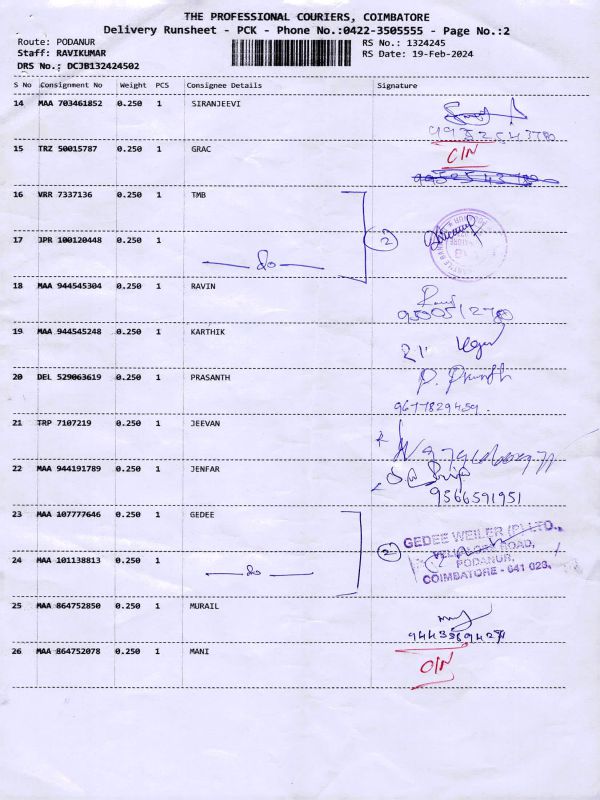 THE PROFESSIONAL COURIERS, COIMBATORE
Delivery Runsheet - PCK - Phone No.:0422-3505555 - Page No.:2
Route: PODANUR
RS No.: 1324245
Staff: RAVIKUMAR
RS Date: 19-Feb-2024
DRS No.: DCJB132424502
S No Consignment No Weight PCS Consignee Details Signature
14 MAA 703461852 0.250 1 SIRANJEEVI
15 TRZ 50015787 0.250 1 GRAC
16 VRR 7337136 0.250 1 TMB
17 JPR 100120448 0.250 1
do 2
18 MAA 944545304 0.250 1 RAVIN
19 MAA 944545248 0.250 1 KARTHIK
20 DEL 529063619 0.250 1 PRASANTH
9677829459
21 TRP 7107219 0.250 1 JEEVAN
22 MAA 944191789 0.250 1 JENFAR
9566591951
23 MAA 107777646 0.250 1 GEDEE
GEDEE WEILER (P) LTD.,
VELLALORE ROAD,
PODANUR,
COIMBATORE - 641 023.
24 MAA 101138813 0.250 1
do 2
25 MAA 864752850 0.250 1 MURAIL
26 MAA 864752078 0.250 1 MANI
O/N